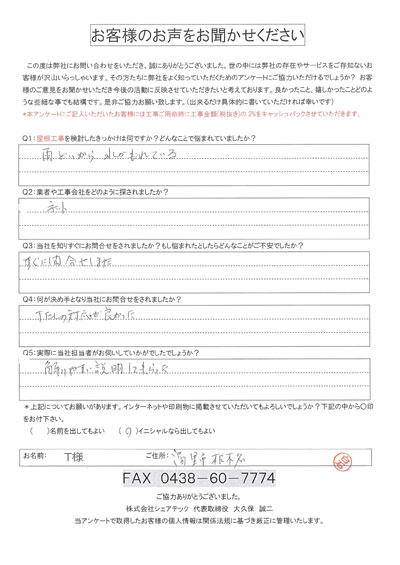 お客様のお声をお聞かせください
この度は弊社にお問い合わせをいただき、誠にありがとうございました。世の中には弊社の存在やサービスをご存知ないお
客様が沢山いらっしゃいます。その方たちに弊社をよく知っていただくためのアンケートにご協力いただけるでしょうか？ お客
様のご意見をお聞かせいただき今後の活動に反映させていただきたいと考えております。良かったこと、嬉しかったことどのよ
うな些細な事でも結構です。是非ご協力お願い致します。（出来るだけ具体的に書いていただければ幸いです）
*本アンケートにご記入いただいたお客様には工事ご用命時に工事金額(税抜き)の 2%をキャッシュバックさせていただきます。
Q1：屋根工事を検討したきっかけは何ですか？どんなことで悩まれていましたか？
雨どいから 水がもれている
Q2：業者や工事会社をどのように探されましたか？
ネット
Q3：当社を知りすぐにお問合せをされましたか？もし悩まれたとしたらどんなことがご不安でしたか？
すぐに問合せしました
Q4：何が決め手となり当社にお問合せをされましたか？
の対応が良かった
Q5：実際に当社担当者がお伺いしていかがでしたでしょうか？
解りやすい説明してもらった
*上記についてお願いがあります。インターネットや印刷物に掲載させていただいてもよろしいでしょうか？下記の中から〇印
をお付下さい。
（　）名前を出してもよい （〇）イニシャルなら出してもよい
お名前： T様 ご住所：
FAX 0438-60-7774
ご協力ありがとうございました。
株式会社シェアテック 代表取締役 大久保 誠二
当アンケートで取得したお客様の個人情報は関係法規に基づき厳正に管理いたします。